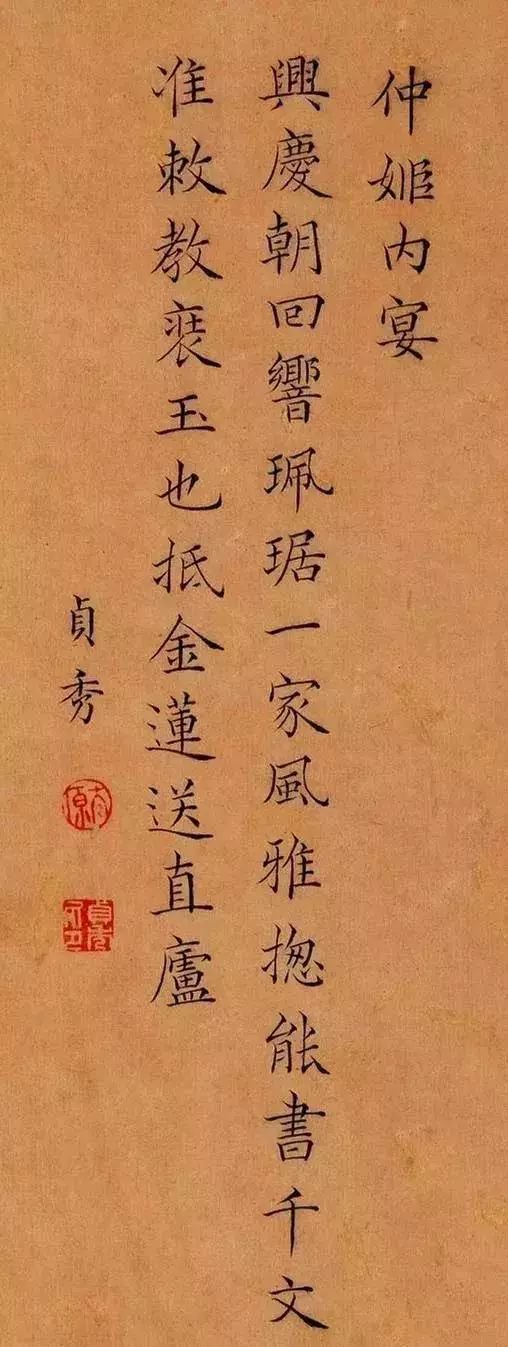 仲姬内宴
興慶朝回響珮琚一家風雅摠能書千文
准敕教裝玉也抵金蓮送直廬
貞秀